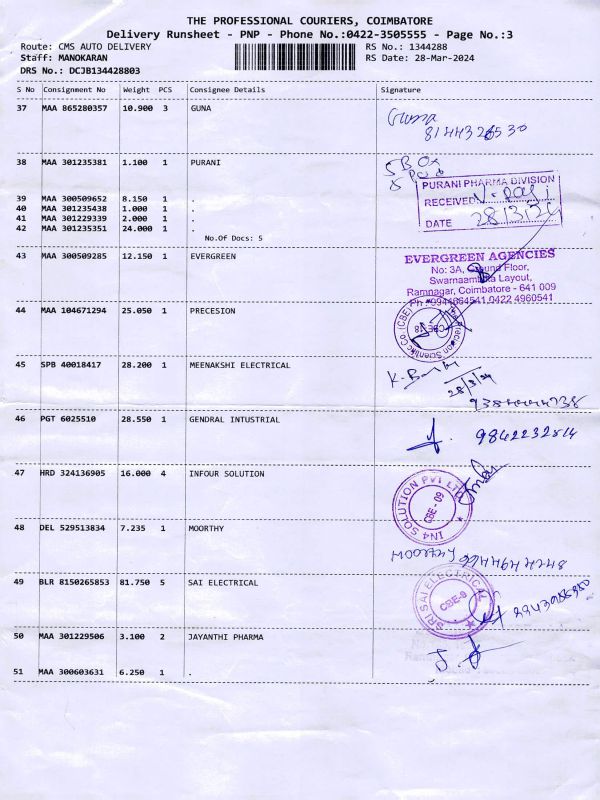 THE PROFESSIONAL COURIERS, COIMBATORE
Delivery Runsheet - PNP - Phone No.:0422-3505555 - Page No.:3
Route: CMS AUTO DELIVERY RS No.: 1344288
Staff: MANOKARAN RS Date: 28-Mar-2024
DRS No.: DCJB134428803
S No Consignment No Weight PCS Consignee Details Signature
37 MAA 865280357 10.900 3 GUNA
Guna
38 MAA 301235381 1.100 1 PURANI
5 Box
PURANI PHARMA DIVISION
RECEIVED
DATE 28/3/24
39 MAA 300509652 8.150 1 .
40 MAA 301235438 1.000 1 .
41 MAA 301229339 2.000 1 .
42 MAA 301235351 24.000 1 .
No.Of Docs: 5
43 MAA 300509285 12.150 1 EVERGREEN
EVERGREEN AGENCIES
No: 3A, Ground Floor,
Swarnaambika Layout,
Ramnagar, Coimbatore - 641 009
Ph : 0422 4960541
44 MAA 104671294 25.050 1 PRECESION
45 SPB 40018417 28.200 1 MEENAKSHI ELECTRICAL
28/3/24
46 PGT 6025510 28.550 1 GENDRAL INTUSTRIAL
9842232514
47 HRD 324136905 16.000 4 INFOUR SOLUTION
IN4 SOLUTION PVT LTD
CBE - 09
48 DEL 529513834 7.235 1 MOORTHY
49 BLR 8150265853 81.750 5 SAI ELECTRICAL
SRI SAI ELECTRICAL
CBE-9
50 MAA 301229506 3.100 2 JAYANTHI PHARMA
51 MAA 300603631 6.250 1 .